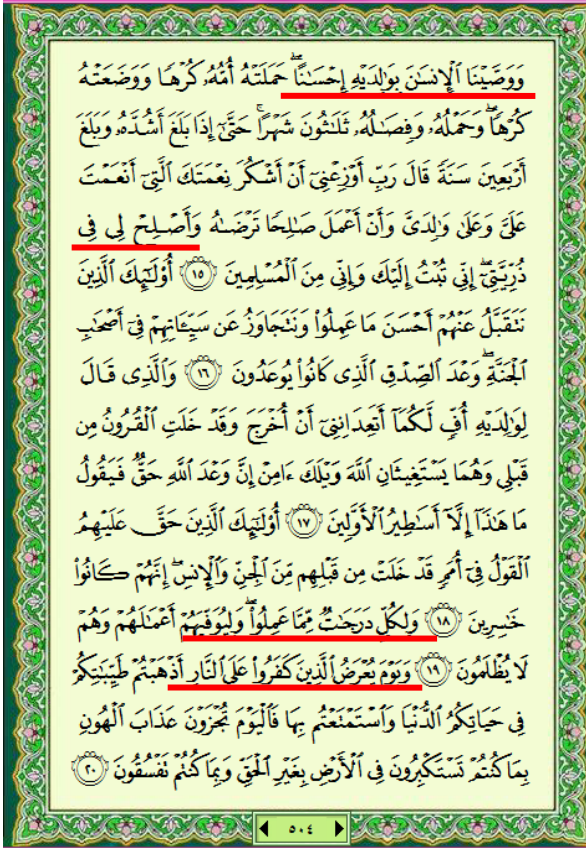 وَوَصَّيْنَا ٱلْإِنسَٰنَ بِوَٰلِدَيْهِ إِحْسَٰنًا ۖ حَمَلَتْهُ أُمُّهُۥ كُرْهًا وَوَضَعَتْهُ
كُرْهًا ۖ وَحَمْلُهُۥ وَفِصَٰلُهُۥ ثَلَٰثُونَ شَهْرًا ۚ حَتَّىٰٓ إِذَا بَلَغَ أَشُدَّهُۥ وَبَلَغَ
أَرْبَعِينَ سَنَةً قَالَ رَبِّ أَوْزِعْنِىٓ أَنْ أَشْكُرَ نِعْمَتَكَ ٱلَّتِىٓ أَنْعَمْتَ
عَلَىَّ وَعَلَىٰ وَٰلِدَىَّ وَأَنْ أَعْمَلَ صَٰلِحًا تَرْضَىٰهُ وَأَصْلِحْ لِى فِى
ذُرِّيَّتِىٓ ۖ إِنِّى تُبْتُ إِلَيْكَ وَإِنِّى مِنَ ٱلْمُسْلِمِينَ ١٥ أُو۟لَٰٓئِكَ ٱلَّذِينَ
نَتَقَبَّلُ عَنْهُمْ أَحْسَنَ مَا عَمِلُوا۟ وَنَتَجَاوَزُ عَن سَيِّـَٔاتِهِمْ فِىٓ أَصْحَٰبِ
ٱلْجَنَّةِ ۖ وَعْدَ ٱلصِّدْقِ ٱلَّذِى كَانُوا۟ يُوعَدُونَ ١٦ وَٱلَّذِى قَالَ
لِوَٰلِدَيْهِ أُفٍّ لَّكُمَآ أَتَعِدَانِنِىٓ أَنْ أُخْرَجَ وَقَدْ خَلَتِ ٱلْقُرُونُ مِن
قَبْلِى وَهُمَا يَسْتَغِيثَانِ ٱللَّهَ وَيْلَكَ ءَامِنْ إِنَّ وَعْدَ ٱللَّهِ حَقٌّ فَيَقُولُ
مَا هَٰذَآ إِلَّآ أَسَٰطِيرُ ٱلْأَوَّلِينَ ١٧ أُو۟لَٰٓئِكَ ٱلَّذِينَ حَقَّ عَلَيْهِمُ
ٱلْقَوْلُ فِىٓ أُمَمٍ قَدْ خَلَتْ مِن قَبْلِهِم مِّنَ ٱلْجِنِّ وَٱلْإِنسِ ۖ إِنَّهُمْ كَانُوا۟
خَٰسِرِينَ ١٨ وَلِكُلٍّ دَرَجَٰتٌ مِّمَّا عَمِلُوا۟ ۖ وَلِيُوَفِّيَهُمْ أَعْمَٰلَهُمْ وَهُمْ
لَا يُظْلَمُونَ ١٩ وَيَوْمَ يُعْرَضُ ٱلَّذِينَ كَفَرُوا۟ عَلَى ٱلنَّارِ أَذْهَبْتُمْ طَيِّبَٰتِكُمْ
فِى حَيَاتِكُمُ ٱلدُّنْيَا وَٱسْتَمْتَعْتُم بِهَا فَٱلْيَوْمَ تُجْزَوْنَ عَذَابَ ٱلْهُونِ
بِمَا كُنتُمْ تَسْتَكْبِرُونَ فِى ٱلْأَرْضِ بِغَيْرِ ٱلْحَقِّ وَبِمَا كُنتُمْ تَفْسُقُونَ ٢٠
٥٠٤